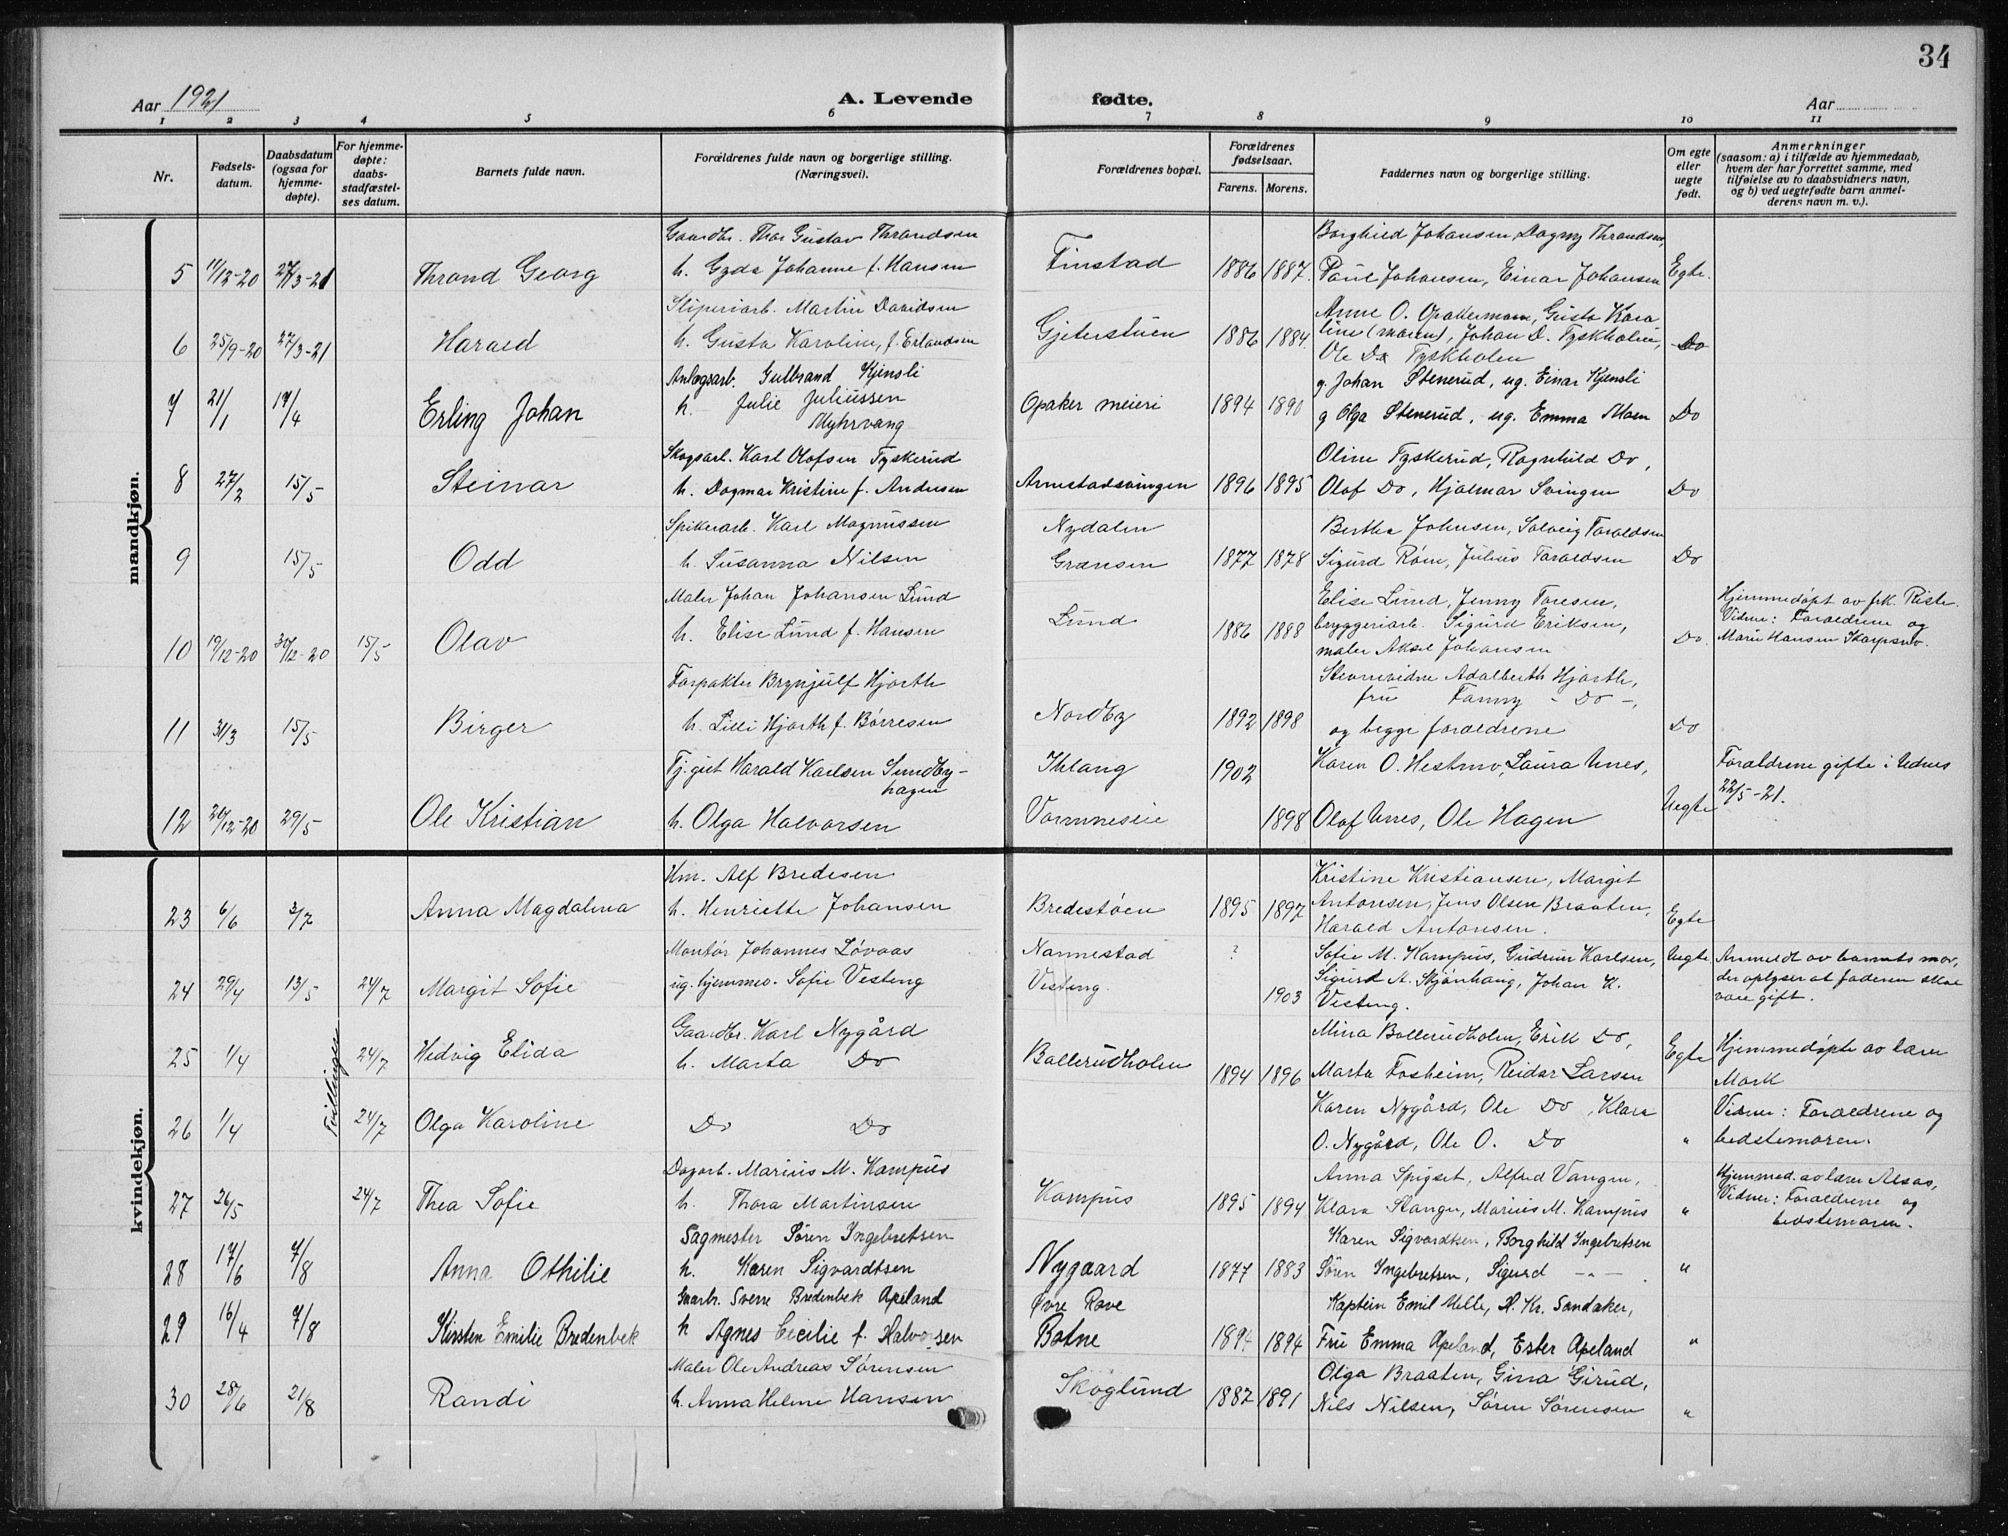 34
Aar 1921
A. Levende
fødte.
Aar
1 2 3 4 5 6 7 8 9 10 11
Nr.
Fødsels-
datum.
Daabsdatum
(ogsaa for
hjemme-
døpte).
For hjemme-
døpte:
daabs-
stadfæstel-
ses datum.
Barnets fulde navn.
Forældrenes fulde navn og borgerlige stilling.
(Næringsvei).
Forældrenes bopæl.
Forældrenes
fødselsaar.
Farens. Morens.
Faddernes navn og borgerlige stilling.
Om egte
eller
uegte
født.
Anmerkninger
(saasom: a) i tilfælde av hjemmedaab,
hvem der har forrettet samme, med
tilføielse av to daabsvidners navn,
og b) ved uegtefødte barn anmel-
derens navn m. v.).
mandkjøn.
Gaardbr. Thor Gustav Throndsen
Borghild Johansen, Dagny Throndsen,
5 11/12-20 27/3-21 Thrond Georg h. Gyda Johanne f. Hansen Finstad 1886 1887. Paul Johansen, Einar Johansen Egte.
Sliperiarb. Martin Davidsen
Anne O. Opakermoen, Gusta Karo
6 25/9-20 27/3-21 Harald h. Gusta Karoline, f. Erlandsen Gjeterstuen 1886 1884. line (moren), Johan D. Tyskholen, Do
Ole Do Tyskholen
Anlægsarb. Gulbrand Kjensli
g. Johan Stenerud, ug. Einar Kjensli
7 21/1 17/4 Erling Johan h. Julie Juliussen Opaker meieri 1894 1890 g Olga Stenerud, ug. Emma Moen Do
Myhrvang
Skogsarb. Karl Olofsen Tyskerud
Oline Tyskerud, Ragnhild Do,
8 27/2 15/5 Steinar h. Dagmar Kristine f. Andresen Arnestadsvingen 1896 1895 Olaf Do, Hjalmar Svingen Do
Spikerarb. Karl Magnussen Nydalen
Berthe Johnsen, Solveig Taraldsen
9 15/5 Odd h. Susanna Nilsen Grænsen 1877 1878 Sigurd Røen, Julius Taraldsen Do
Maler Johan Johansen Lund
Elise Lund, Jenny Toresen,
Hjemmedøpt av frk. Riste.
10 19/12-20 30/12-20 15/5 Olav h. Elise Lund f. Hansen Lund 1886 1888 bryggeriarb. Sigurd Eriksen, Do. Vidner: Forældrene og
maler Aksel Johansen
Marie Hansen Skarpsno.
Forpakter Brynjulf Hjorth
Stevnevidne Adalberth Hjorth,
fru Fanny - Do -,
11 31/3 15/5 Birger h. Lilli Hjorth f. Børresen Nordby 1892 1898 og begge forældrene Do
Tj. gut Harald Karlsen Sundby-
hagen
Ihlang 1902 Karen O. Hestmo, Laura Unes, Forældrene gifte i Udnes
22/5-21.
12 20/12-20 29/5 Ole Kristian h. Olga Halvorsen Vormneseie 1898 Olaf Unes, Ole Hagen Uegte
kvindekjøn.
Hm. Alf Bredesen
Kristine Kristiansen, Margit
23 6/6 3/7 Anna Magdalena h. Henriette Johansen Bredestøen 1895 1897 Antonsen, Jens Olsen Braaten, Egte
Harald Antonsen.
Montør Johannes Løvaas Nannestad ? Sofie M. Kampus, Gudrun Karlsen, Uegte Anmeldt av barnets mor,
24 29/4 13/5 24/7 Margit Sofie ug. hjemmev. Sofie Vesteng Vesteng. 1903 Sigurd A. Skjønhaug, Johan K. der oplyser at faderen skal
Vesteng. være gift.
Gaardbr. Karl Nygård
Mina Bollerudholen, Erik Do,
25 1/4 Tvillinger 24/7 Hedvig Elida h. Marta Do Bollerudholen 1894 1896 Marta Fosheim, Reidar Larsen Egte Hjemmedøpte av lærer
Mork
26 1/4 24/7 Olga Karoline Do Do Karen Nygård, Ole Do, Klara Vidner: Forældrene og
O. Nygård, Ole O. Do " bedstemoren.
Dagarb. Marius M. Kampus
Anna Spigset, Alfred Vangen,
Hjemmed. av lærer Alsos,
27 26/5 24/7 Thea Sofie h. Thora Martinsen Kampus 1895 1894 Klara Stange, Marius M. Kampus " Vidner: Forældrene og
bedstemoren.
Sagmester Søren Ingebretsen
Karen Sigvardtsen, Borghild Ingebretsen
28 17/6 7/8 Anna Othilie h. Karen Sigvardtsen Nygaard 1877 1883 Søren Ingebretsen, Sigurd - " - . "
Gaarbr. Sverre Bredenbek Apeland Øvre Rove Kaptein Emil Melle, A. Kr. Sandaker,
29 16/4 7/8 Kirsten Emilie Bredenbek h Agnes Cecilie f. Halvorsen Botne 1894 1894 Fru Emma Apeland, Ester Apeland "
Maler Ole Andreas Sørensen
Olga Braaten, Gina Girud,
30 28/6 21/8 Randi h. Anna Helene Hansen Skoglund 1882 1891 Nils Nilsen, Søren Sørensen "